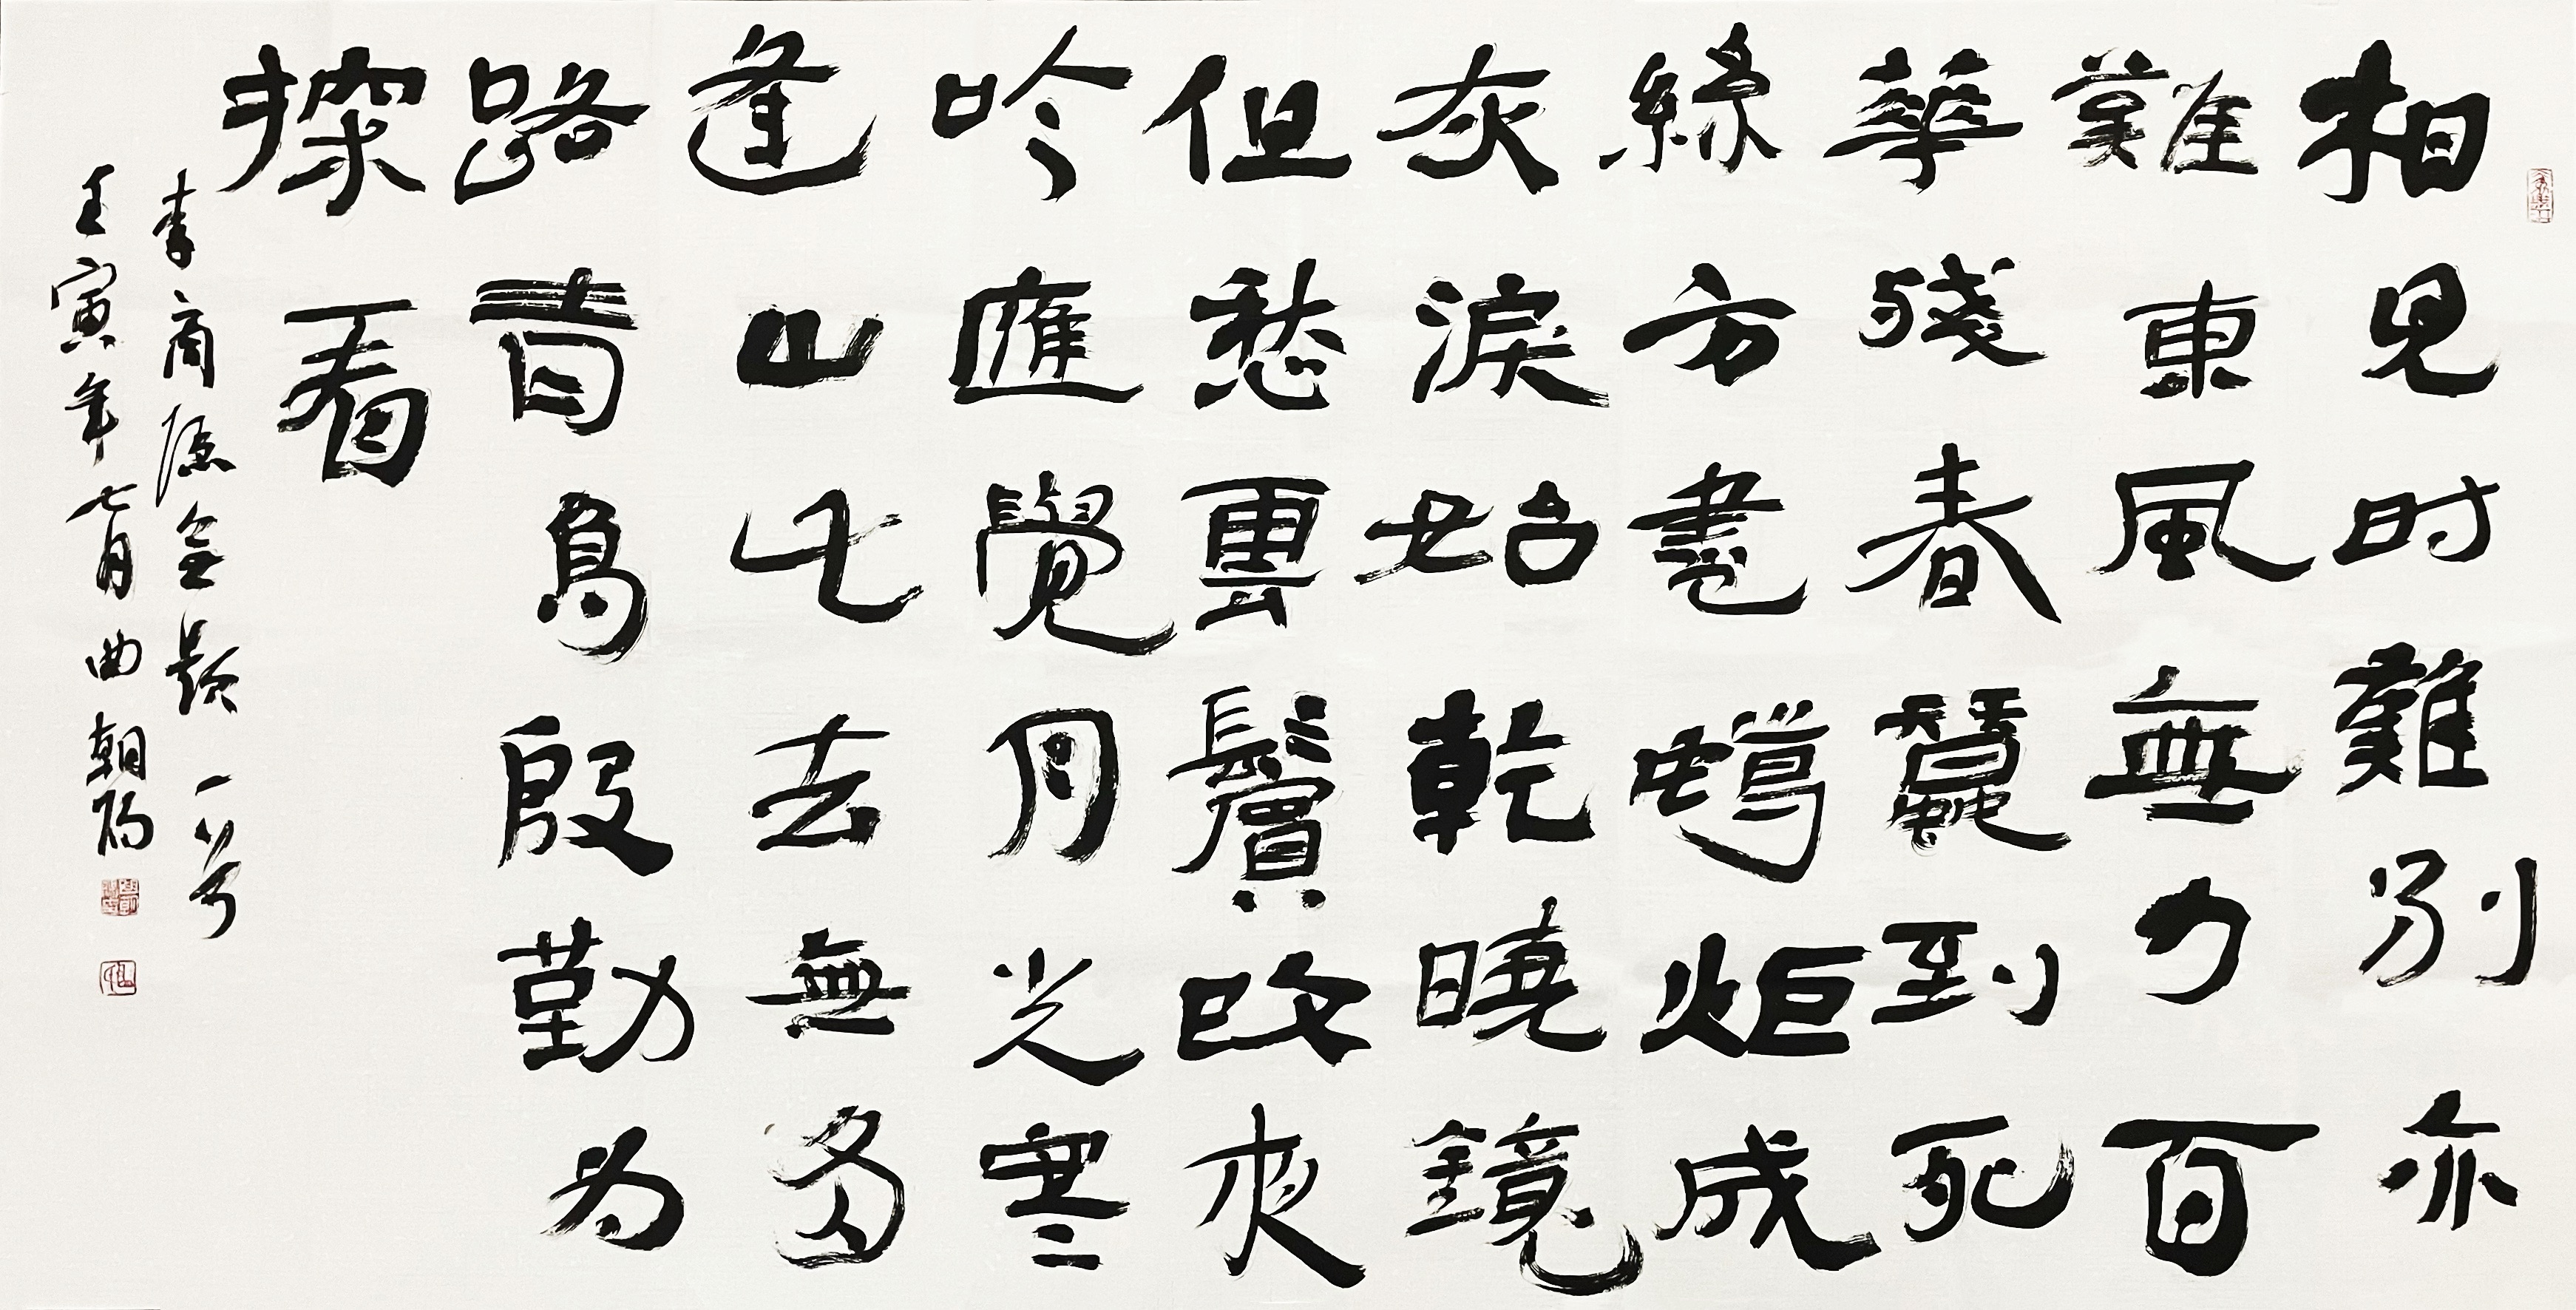 相見时難別亦
難東風無力百
華殘春蠶到死
絲方盡蠟炬成
灰淚始乾曉鏡
但愁雲鬢改夜
吟應覺月光寒
逢山此去無多
路青鳥殷勤为
探看
李商隐無题一首
壬寅年七月曲朝阳